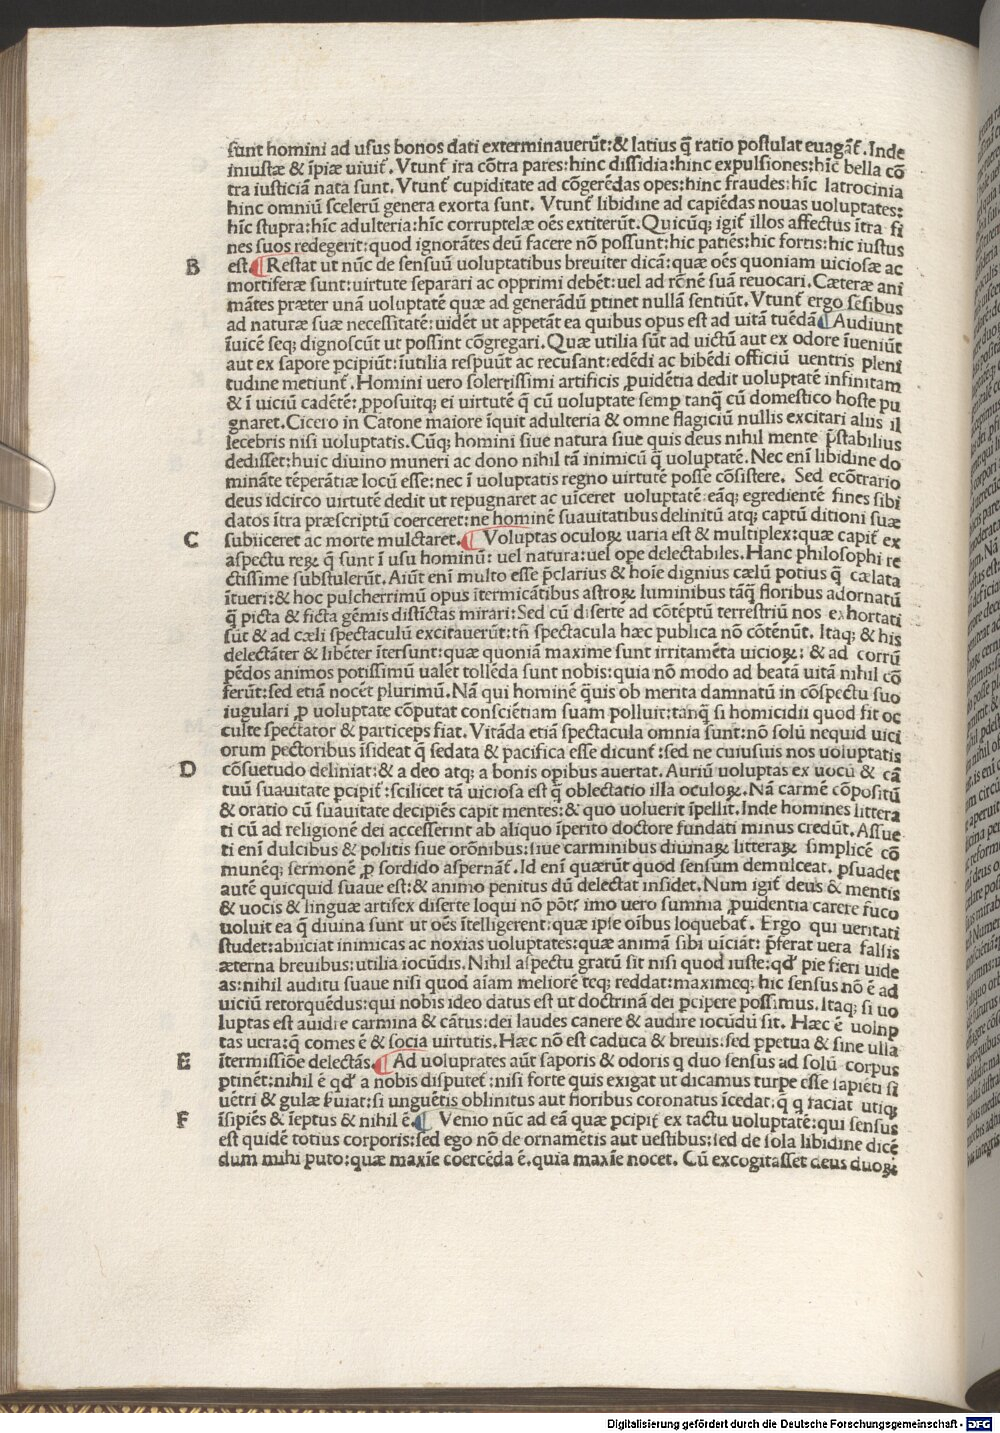 sunt homini ad usus bonos dati exterminauerūt:& latius q̄ ratio postulat euagāt̄. Inde
iniustæ & īpiæ uiuit̄. Vtunt̄ ira cōtra pares: hinc dissidia: hinc expulsiones: hīc bella cō
tra iusticiā nata sunt. Vtunt̄ cupiditate ad cōgerēdas opes: hinc fraudes: hīc latrocinia
hinc omniū scelerū genera exorta sunt. Vtunt̄ libidine ad capiēdas nouas uoluptates:
hīc stupra: hīc adulteria: hīc corruptelæ oēs extiterūt. Quicūq; igit̄ illos affectus ītra fi
nes suos redegerit: quod ignorātes deū facere nō possunt: hic patiēs: hic fortis: hic iustus
B est. ¶ Restat ut nūc de sensuū uoluptatibus breuiter dicā: quæ oēs quoniam uiciosæ ac
mortiferæ sunt: uirtute separari ac opprimi debēt: uel ad rōnē suā reuocari. Cæteræ ani
mātes præter unā uoluptatē quæ ad generādū ꝑtinet nullā sentiūt. Vtunt̄ ergo sēsibus
ad naturæ suæ necessitatē: uidēt ut appetāt ea quibus opus est ad uitā tuēdā ¶ Audiunt
īuicē seq; dignoscūt ut possint cōgregari. Quæ utilia sūt ad uictū aut ex odore īueniūt
aut ex sapore ꝑcipiūt: īutilia respuūt ac recusant: edēdi ac bibēdi officiū uentris pleni
tudine metiunt̄. Homini uero solertissimi artificis ꝓuidētia dedit uoluptatē infinitam
& ī uiciū cadētē: ꝓposuitq; ei uirtutē q̄ cū uoluptate semꝑ tanq̄ cū domestico hoste pu
gnaret. Cicero in Catone maiore īquit adulteria & omne flagiciū nullis excitari aliis il
lecebris nisi uoluptatis. Cūq; homini siue natura siue quis deus nihil mente p̄stabilius
dedisset: huic diuino muneri ac dono nihil tā inimicū q̄ uoluptatē. Nec enī libidine do
mināte tēperātiæ locū esse: nec ī uoluptatis regno uirtutē posse cōsistere. Sed ecōtrario
deus idcirco uirtutē dedit ut repugnaret ac uīceret uoluptatē: eāq; egredientē fines sibi
datos ītra præscriptū coerceret: ne hominē suauitatibus delinitū atq; captū ditioni suæ
C subiiceret ac morte mulctaret. ¶ Voluptas oculoꝝ uaria est & multiplex: quæ capit̄ ex
aspectu reꝝ q̄ sunt ī usu hominū: uel natura: uel ope delectabiles. Hanc philosophi re
ctissime substulerūt. Aiūt enī multo esse p̄clarius & hoīe dignius cælū potius q̄ cælata
ītueri: & hoc pulcherrimū opus ītermicātibus astroꝝ luminibus tāq̄ floribus adornatū
q̄ picta & ficta gēmis distīctas mirari: Sed cū diserte ad cōtēptū terrestriū nos exhortati
sūt & ad cæli spectaculū excitauerūt: tn̄ spectacula hæc publica nō cōtēnūt. Itaq; & his
delectāter & libēter ītersunt: quæ quoniā maxime sunt irritamēta uicioꝝ: & ad corrū
pēdos animos potissimū ualēt tollēda sunt nobis: quia nō modo ad beatā uitā nihil cō
ferūt: sed etiā nocēt plurimū. Nā qui hominē q̄uis ob merita damnatū in cōspectu suo
iugulari ꝓ uoluptate cōputat consciētiam suam polluit: tanq̄ si homicidii quod fit oc
culte spectator & particeps fiat. Vitāda etiā spectacula omnia sunt: nō solū nequid uici
orum pectoribus īsideat q̄ sedata & pacifica esse dicunt̄: sed ne cuiusuis nos uoluptatis
D cōsuetudo deliniat: & a deo atq; a bonis opibus auertat. Auriū uoluptas ex uocū & cā
tuū suauitate ꝑcipit̄: scilicet tā uiciosa est q̄ oblectatio illa oculoꝝ. Nā carmē cōpositū
& oratio cū suauitate decipiēs capit mentes: & quo uoluerit īpellit. Inde homines littera
ti cū ad religionē dei accesserint ab aliquo īperito doctore fundati minus credūt. Assue
ti enī dulcibus & politis siue orōnibus: siue carminibus diuinaꝝ litteraꝝ simplicē cō
munēq; sermonē ꝓ sordido aspernāt̄. Id enī quærūt quod sensum demulceat. ꝑsuadet
autē quicquid suaue est: & animo penitus dū delectat insidet. Num igit̄ deus & mentis
& uocis & linguæ artifex diserte loqui nō pōt? imo uero summa ꝓuidentia carere fuco
uoluit ea q̄ diuina sunt ut oēs ītelligerent: quæ ipse oībus loquebat̄. Ergo qui ueritati
studet: abiiciat inimicas ac noxias uoluptates: quæ animā sibi uīciāt: p̄ferat uera falsis
æterna breuibus: utilia iocūdis. Nihil aspectu gratū sit nisi quod iuste: qd' pie fieri uide
as: nihil auditu suaue nisi quod aīam meliorē teq; reddat: maximeq; hic sensus nō ē ad
uiciū retorquēdus: qui nobis ideo datus est ut doctrinā dei ꝑcipere possimus. Itaq; si uo
luptas est audire carmina & cātus: dei laudes canere & audire iocūdū sit. Hæc ē uolup
tas uera: q̄ comes ē & socia uirtutis. Hæc nō est caduca & breuis: sed ꝑpetua & sine ulla
E ītermissiōe delectās. ¶ Ad uoluptates aūt saporis & odoris q duo sensus ad solū corpus
ꝑtinēt: nihil ē qd' a nobis disputet̄: nisi forte quis exigat ut dicamus turpe esse sapiēti si
uētri & gulæ seruiat: si unguētis oblinitus aut floribus coronatus īcedat: q̄ q faciat utiq;
F īsipiēs & īeptus & nihil ē. ¶ Venio nūc ad eā quæ ꝑcipit̄ ex tactu uoluptatē: qui sensus
est quidē totius corporis: sed ego nō de ornamētis aut uestibus: sed de sola libidine dicē
dum mihi puto: quæ maxīe coercēda ē. quia maxīe nocet. Cū excogitasset deus duoꝝ
Digitalisierung gefördert durch die Deutsche Forschungsgemeinschaft - DFG